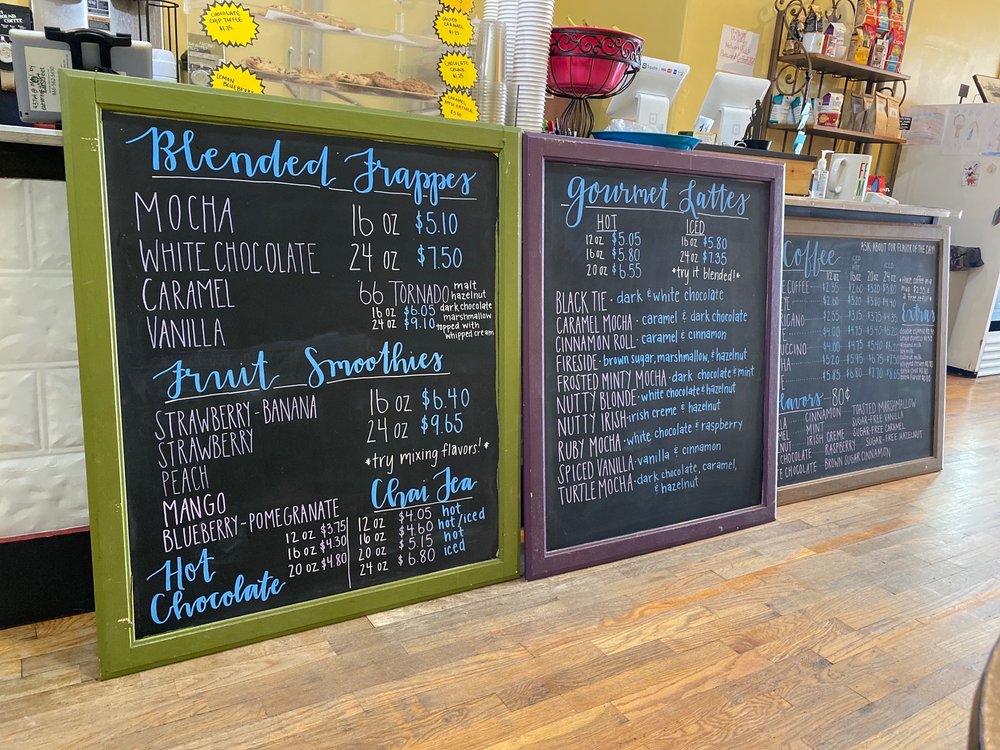 CHOCOLATE
CHIP TOFFEE
$1.25
LEMON
BLUEBERRY
SALTED
CARAMEL
CHOCOLATE
CHUNK
$1.25
CARAMEL
APPLE OATMEAL
Blended Frappes
MOCHA
WHITE CHOCOLATE
CARAMEL
VANILLA
16 OZ $5.10
24 OZ $7.50
66 TORNADO
16 oz $6.05
24 oz $9.10
malt
hazelnut
dark chocolate
marshmallow
topped with
whipped cream
Fruit Smoothies
STRAWBERRY-BANANA
STRAWBERRY
PEACH
MANGO
BLUEBERRY-POMEGRANATE
16 OZ $6.40
24 OZ $9.65
*try mixing flavors!*
Hot
Chocolate
12 oz $3.75
16 oz $4.30
20 oz $4.80
Chai Tea
12 oz $4.05 hot
16 oz $4.60 hot/iced
20 oz $5.15 hot
24 oz $6.80 iced
Gourmet Lattes
HOT
12 oz $5.05
16 oz $5.80
20 oz $6.55
ICED
16 oz $5.80
24 oz $7.35
*try it blended!*
BLACK TIE - dark & white chocolate
CARAMEL MOCHA - caramel & dark chocolate
CINNAMON ROLL - caramel & cinnamon
FIRESIDE - brown sugar, marshmallow, & hazelnut
FROSTED MINTY MOCHA - dark chocolate & mint
NUTTY BLONDE - white chocolate & hazelnut
NUTTY IRISH - irish creme & hazelnut
RUBY MOCHA - white chocolate & raspberry
SPICED VANILLA - vanilla & cinnamon
TURTLE MOCHA - dark chocolate, caramel,
& hazelnut
ASK ABOUT OUR FLAVOR OF THE DAY!
Coffee
12 oz 16 oz 20 oz 24 oz
COFFEE
Extras
CINNAMON TOASTED MARSHMALLOW
MINT SUGAR-FREE VANILLA
IRISH CREME SUGAR-FREE CARAMEL
CHOCOLATE RASPBERRY SUGAR-FREE HAZELNUT
CHOCOLATE BROWN SUGAR CINNAMON
80¢